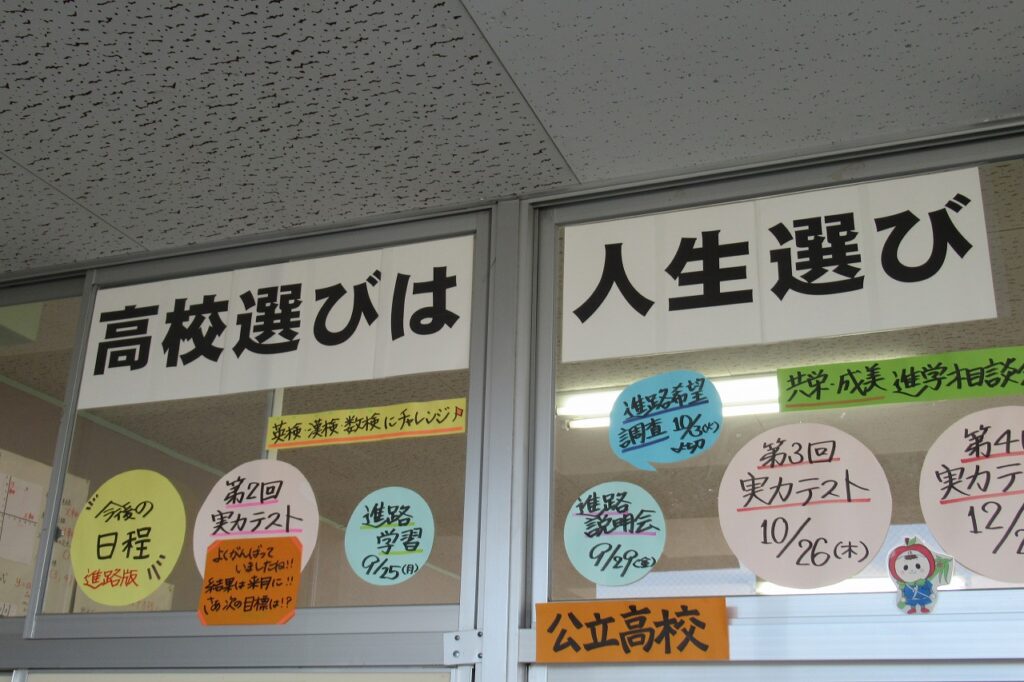 高校選びは
人生選び
英検・漢検・数検にチャレンジ
今後の
日程
進路版
第2回
実力テスト
よくがんばって
いましたね!!
結果は来月に!!
さあ次の目標は!?
進路
学習
9/25(月)
進路希望
調査 10/3(火)
〆切
進路
説明会
9/29(金)
共栄・成美 進学相談会
第3回
実力テスト
10/26(木)
第4
実力テ
12/2
公立高校